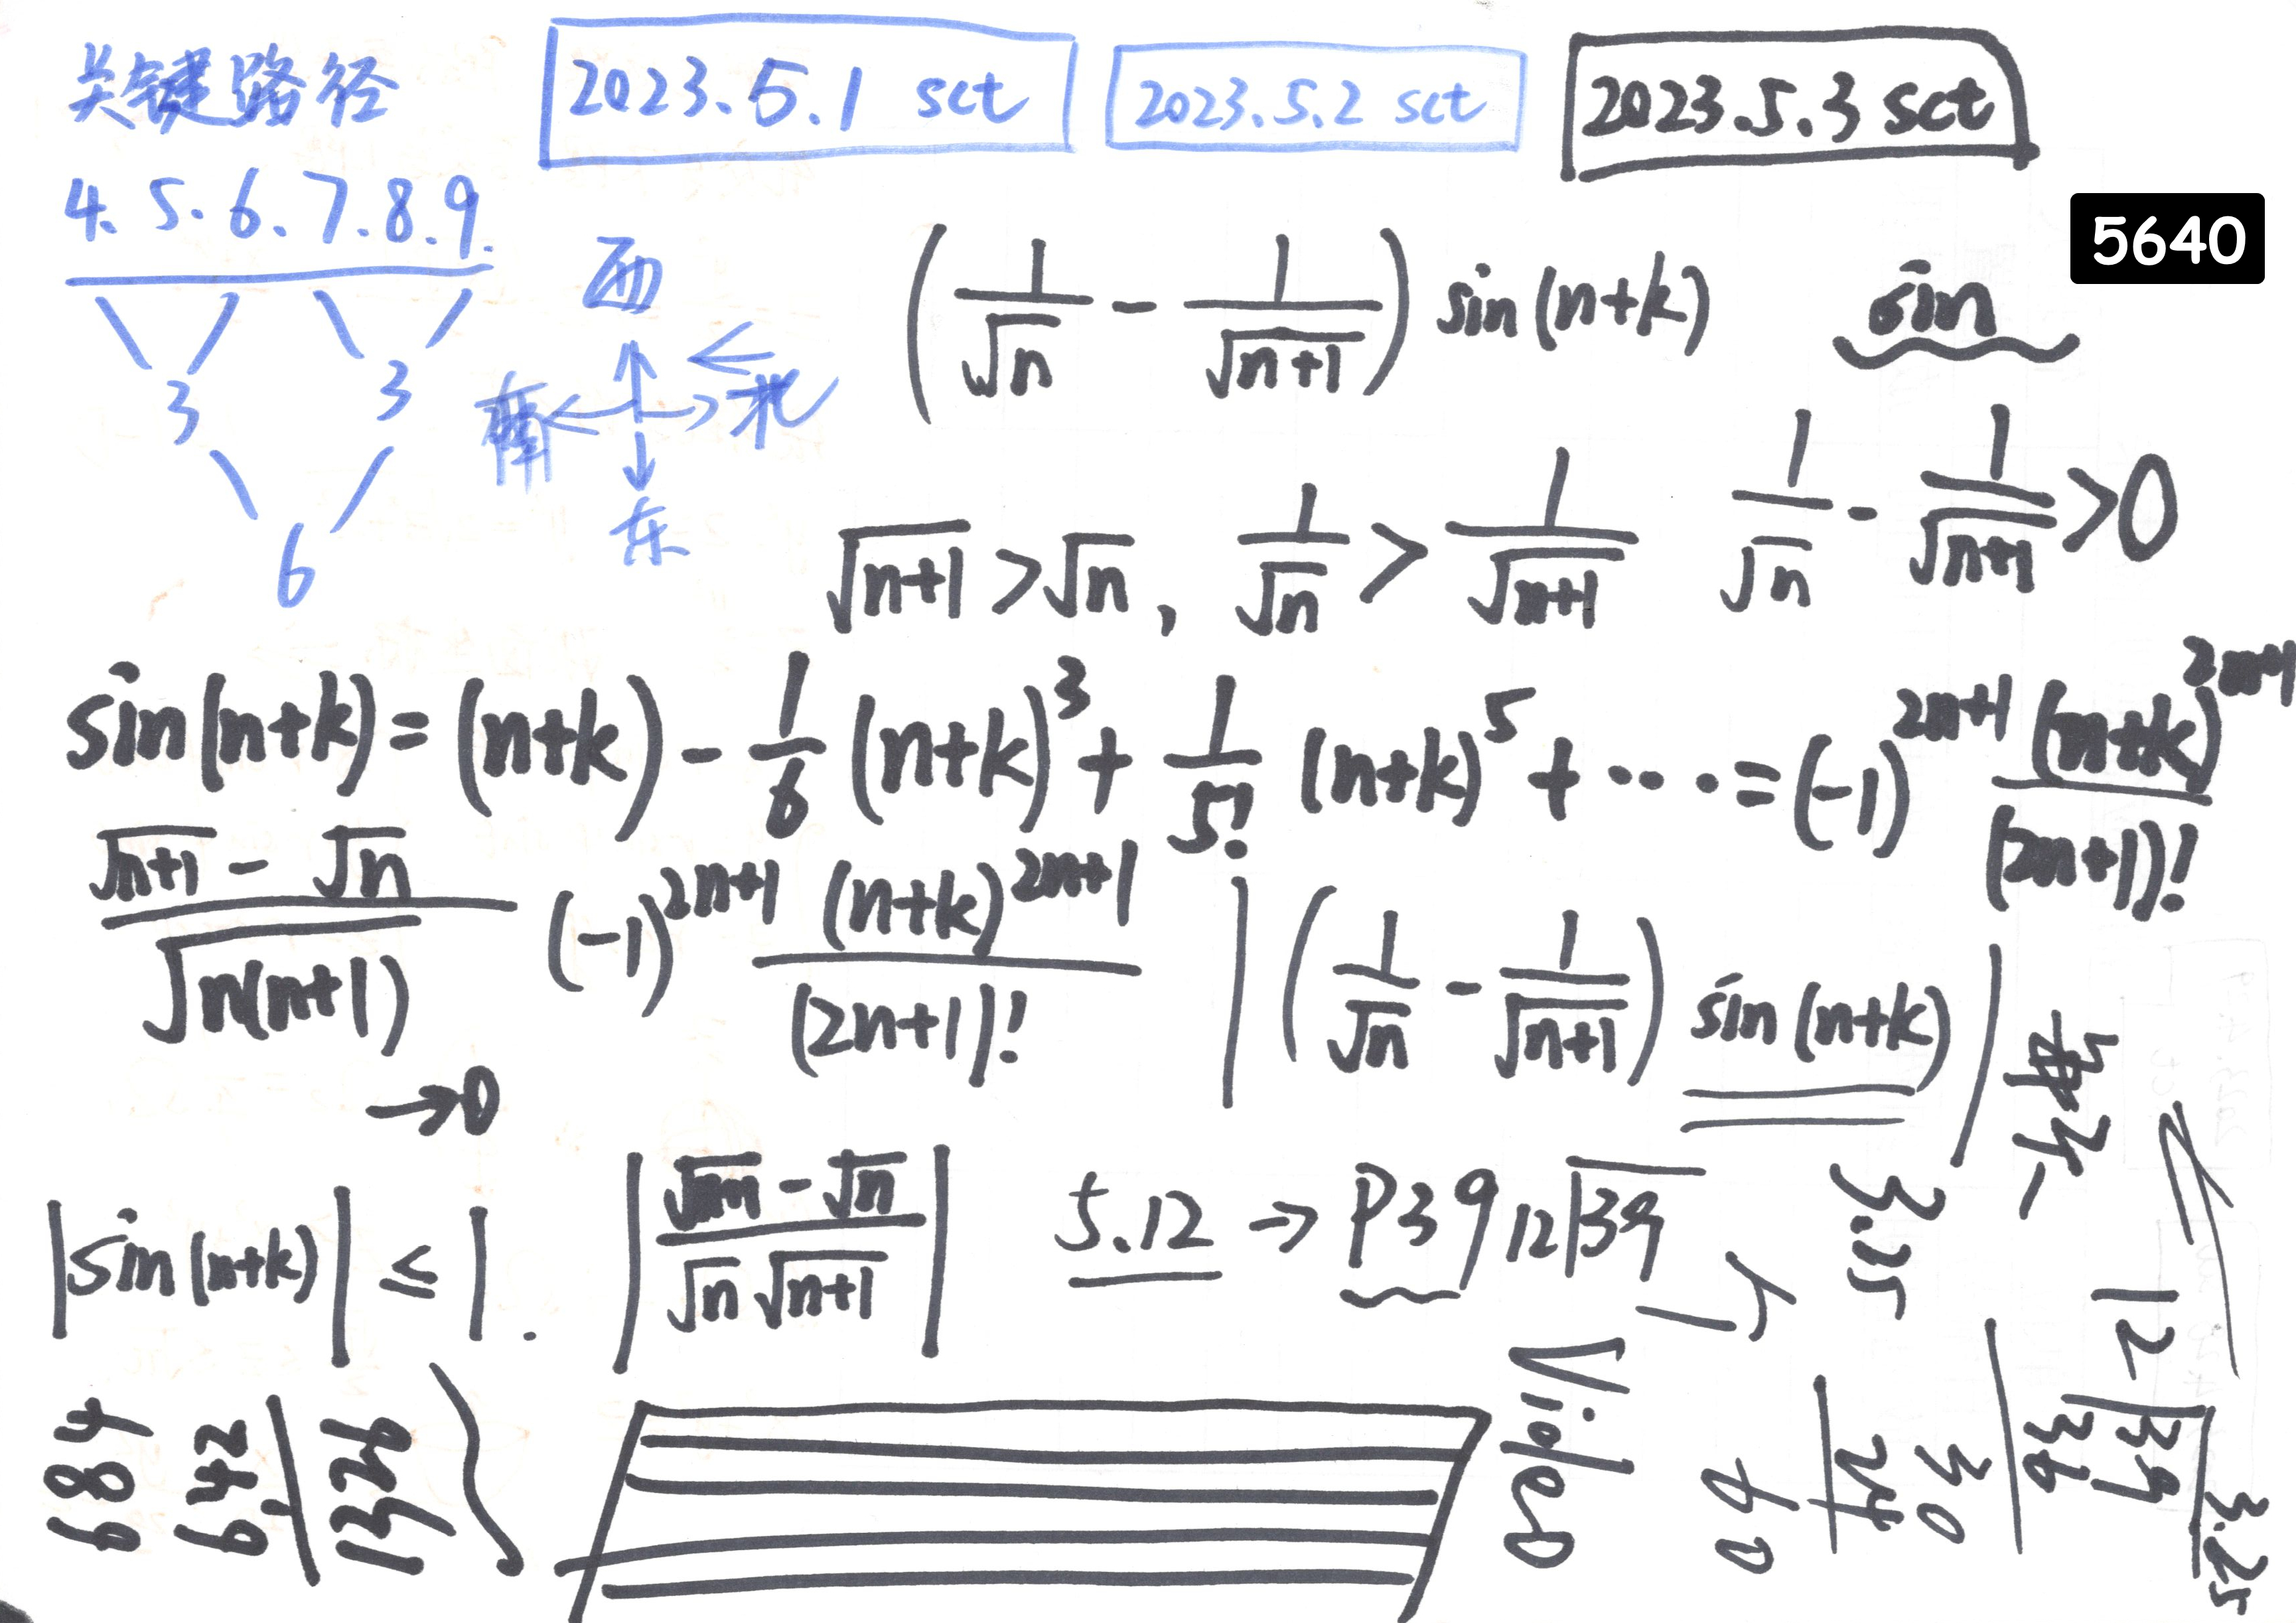 关键路径
2023.5.1 sct
2023.5.2 sct
2023.5.3 sct
5640
4. 5. 6. 7. 8. 9.
3 3
6
西
南 北
东
(1/√n - 1/√(n+1)) sin(n+k)
sin
√(n+1) > √n, 1/√n > 1/√(n+1)
1/√n - 1/√(n+1) > 0
sin(n+k) = (n+k) - 1/6 (n+k)^3 + 1/5! (n+k)^5 + ⋯ = (-1)^(2n+1) (n+k)^(2n+1)/(2n+1)!
(√(n+1) - √n)/√(n(n+1)) (-1)^(2n+1) (n+k)^(2n+1)/(2n+1)!
→0
|(1/√n - 1/√(n+1)) sin(n+k)|
|sin(n+k)| ≤ 1.
5.12 → P39
12 39
3.25
12 39
36
30
24
60
684
642
1326